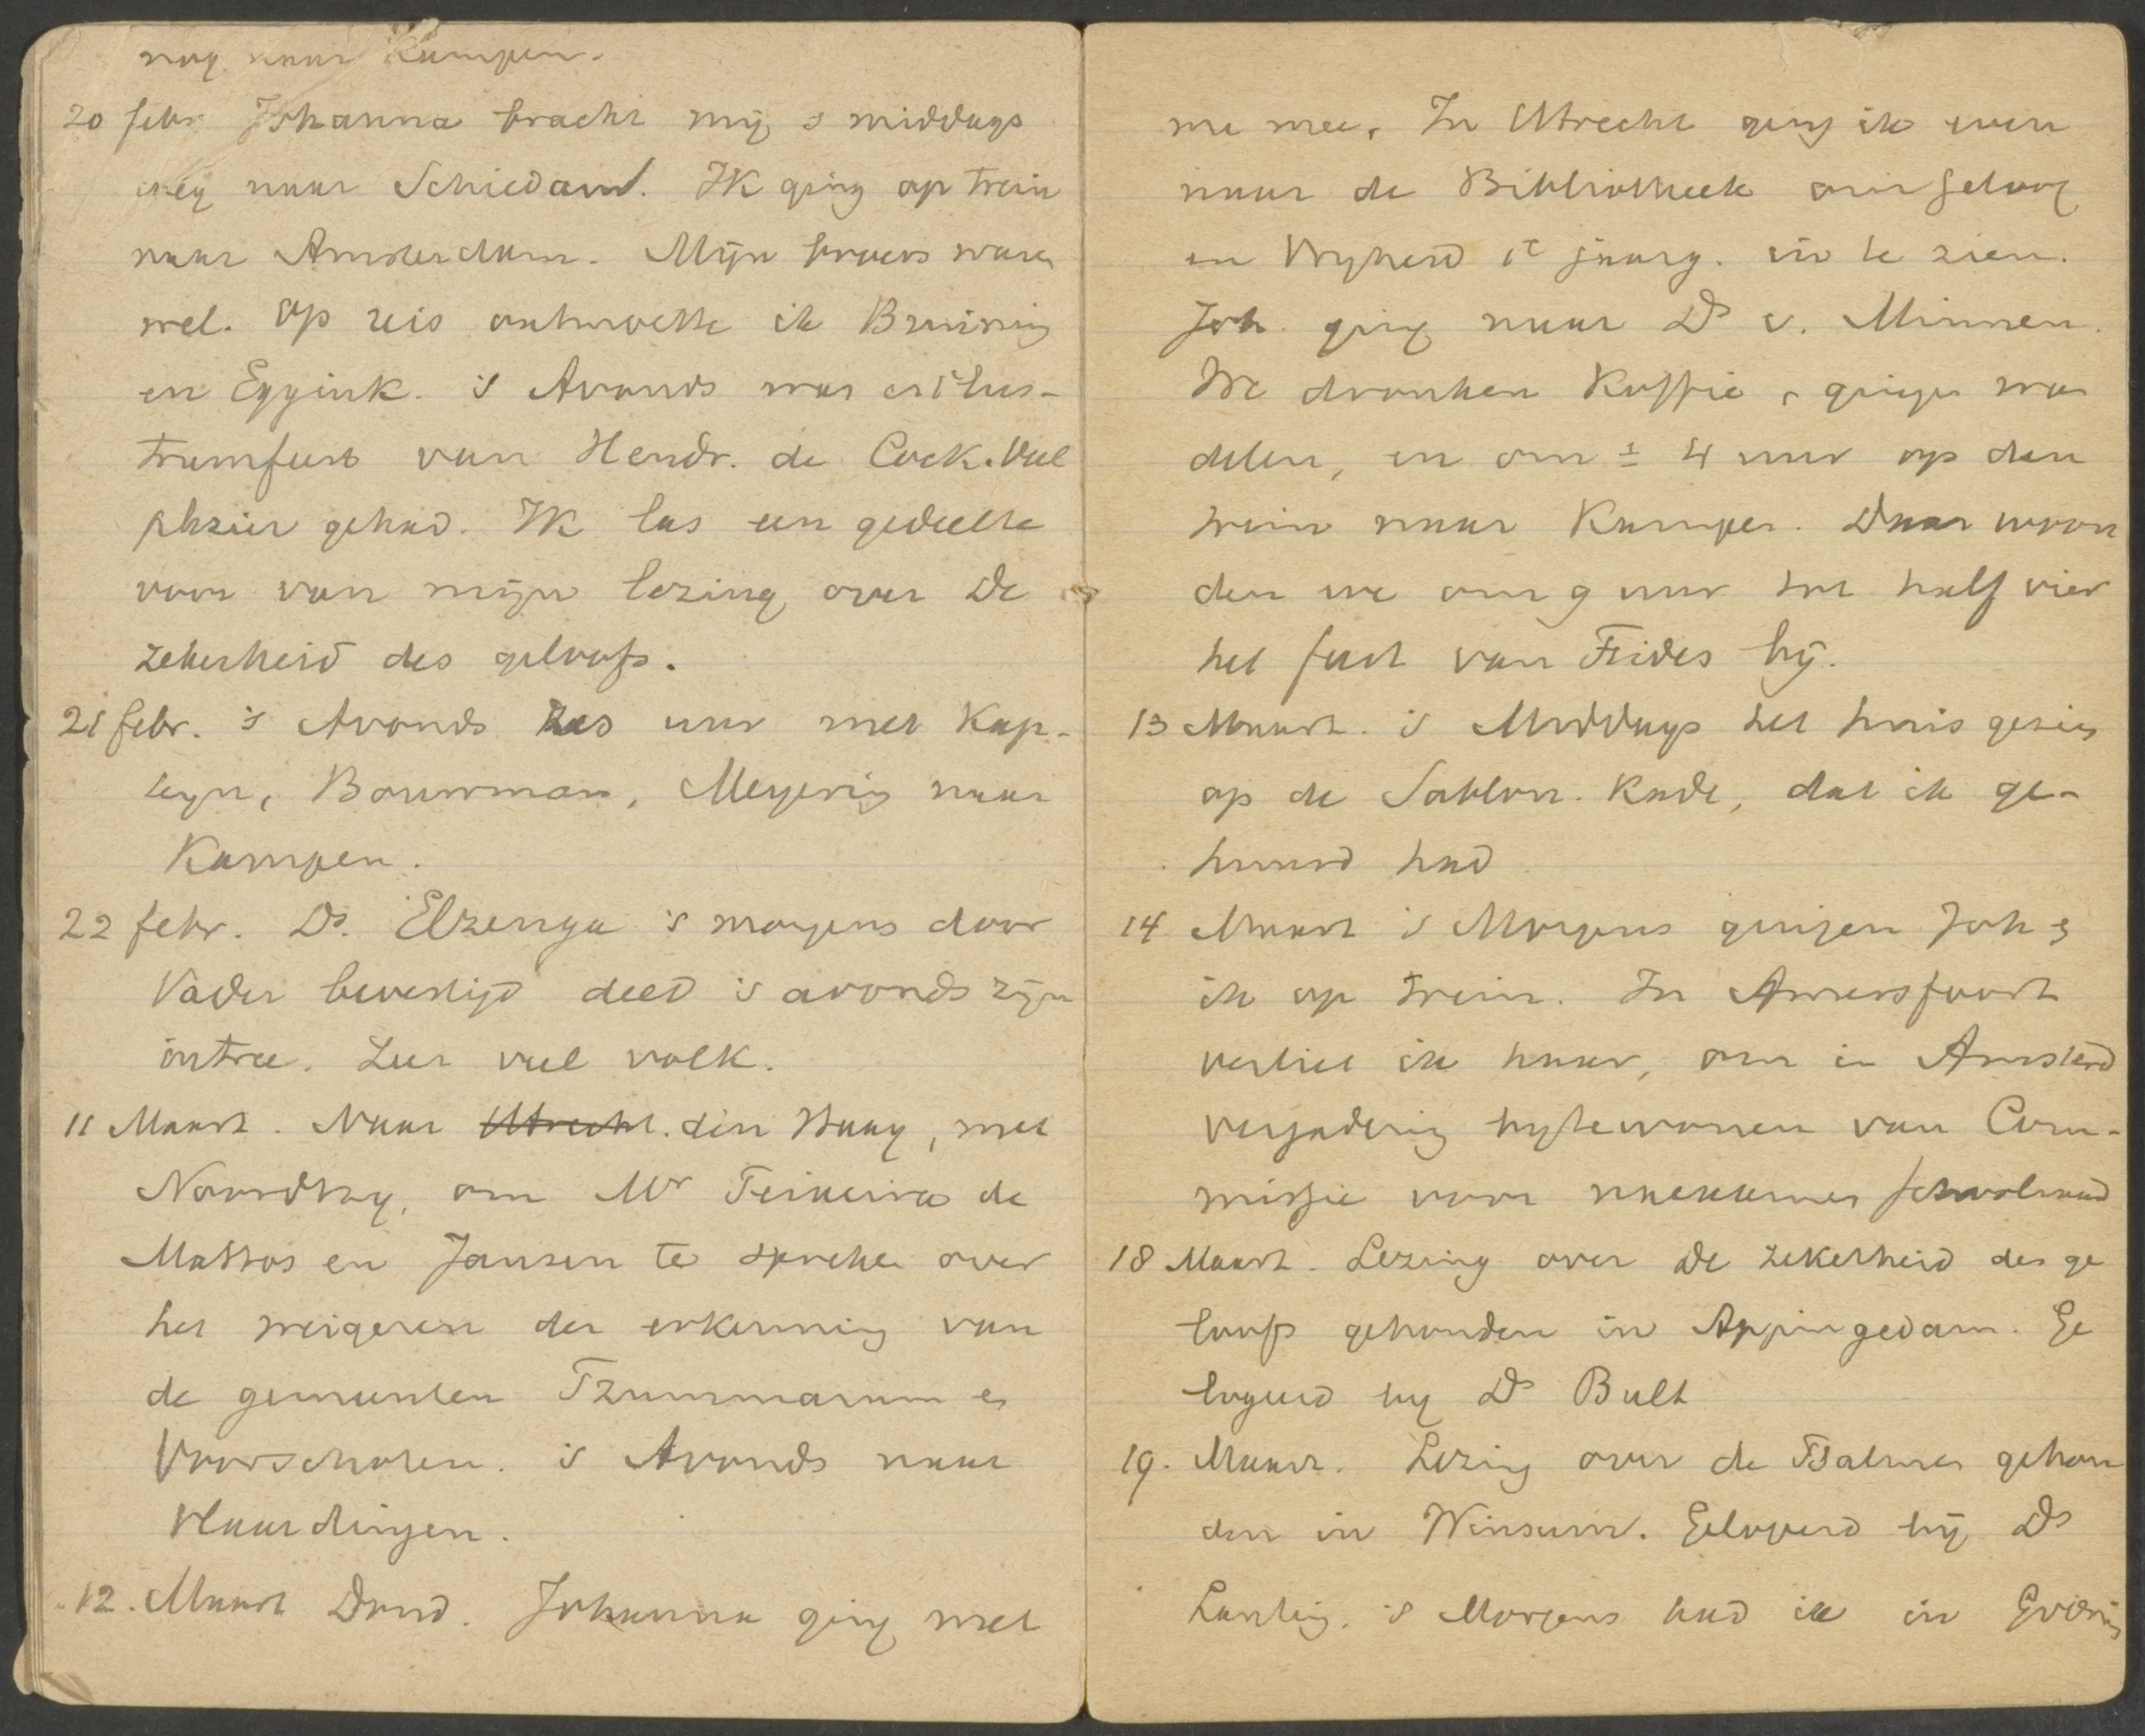 nog naar Kampen.
20 febr. Johanna bracht mij 's middags
weg naar Schiedam. Ik ging op trein
naar Amsterdam. Mijn broers waren
wel. Op reis ontmoette ik Bruining
en Eggink. 's Avonds was er 't lus-
trumfeest van Hendr. de Cock. Veel
plezier gehad. Ik las een gedeelte
voor van mijn lezing over De
zekerheid des geloofs.
21 febr. 's Avonds zes uur met Kap-
teyn, Bouwman, Meyering naar
Kampen.
22 febr. Ds. Elzenga 's morgens door
Vader bevestigd deed 's avonds zijn
intree. Zeer veel volk.
11 Maart. Naar Utrecht. den Haag, met
Noordtzy, om Mr Teixeira de
Mattos en Jansen te spreken over
het weigeren der erkenning van
de gemeenten Tzummarum en
Voorschoten. 's Avonds naar
Vlaardingen.
12. Maart Dond. Johanna ging met
me mee. In Utrecht ging ik even
naar de Bibliotheek om Geloof
en Vryheid 1e jaarg. in te zien.
Joh. ging naar Ds v. Minnen.
We dronken Koffie, gingen wan
delen, en om ± 4 uur op den
trein naar Kampen. Daar woon
den we om 9 uur tot half vier
het feest van Fides bij.
13 Maart. 's Middags het huis gezien
op de Kade, dat ik ge-
huurd had
14 Maart 's Morgens gingen Joh &
ik op trein. In Amersfoort
verliet ik haar, om in Amsterd
vergadering bytewonen van Com-
missie voor schoolraad
18 Maart. Lezing over De zekerheid des ge
loofs gehouden in Appingedam. Ge
logeerd by Ds Bult
19. Maart. Lezing over de Psalmen gehou
den in Winsum. Gelogeerd bij Ds
Lanting. 's Morgens had ik in